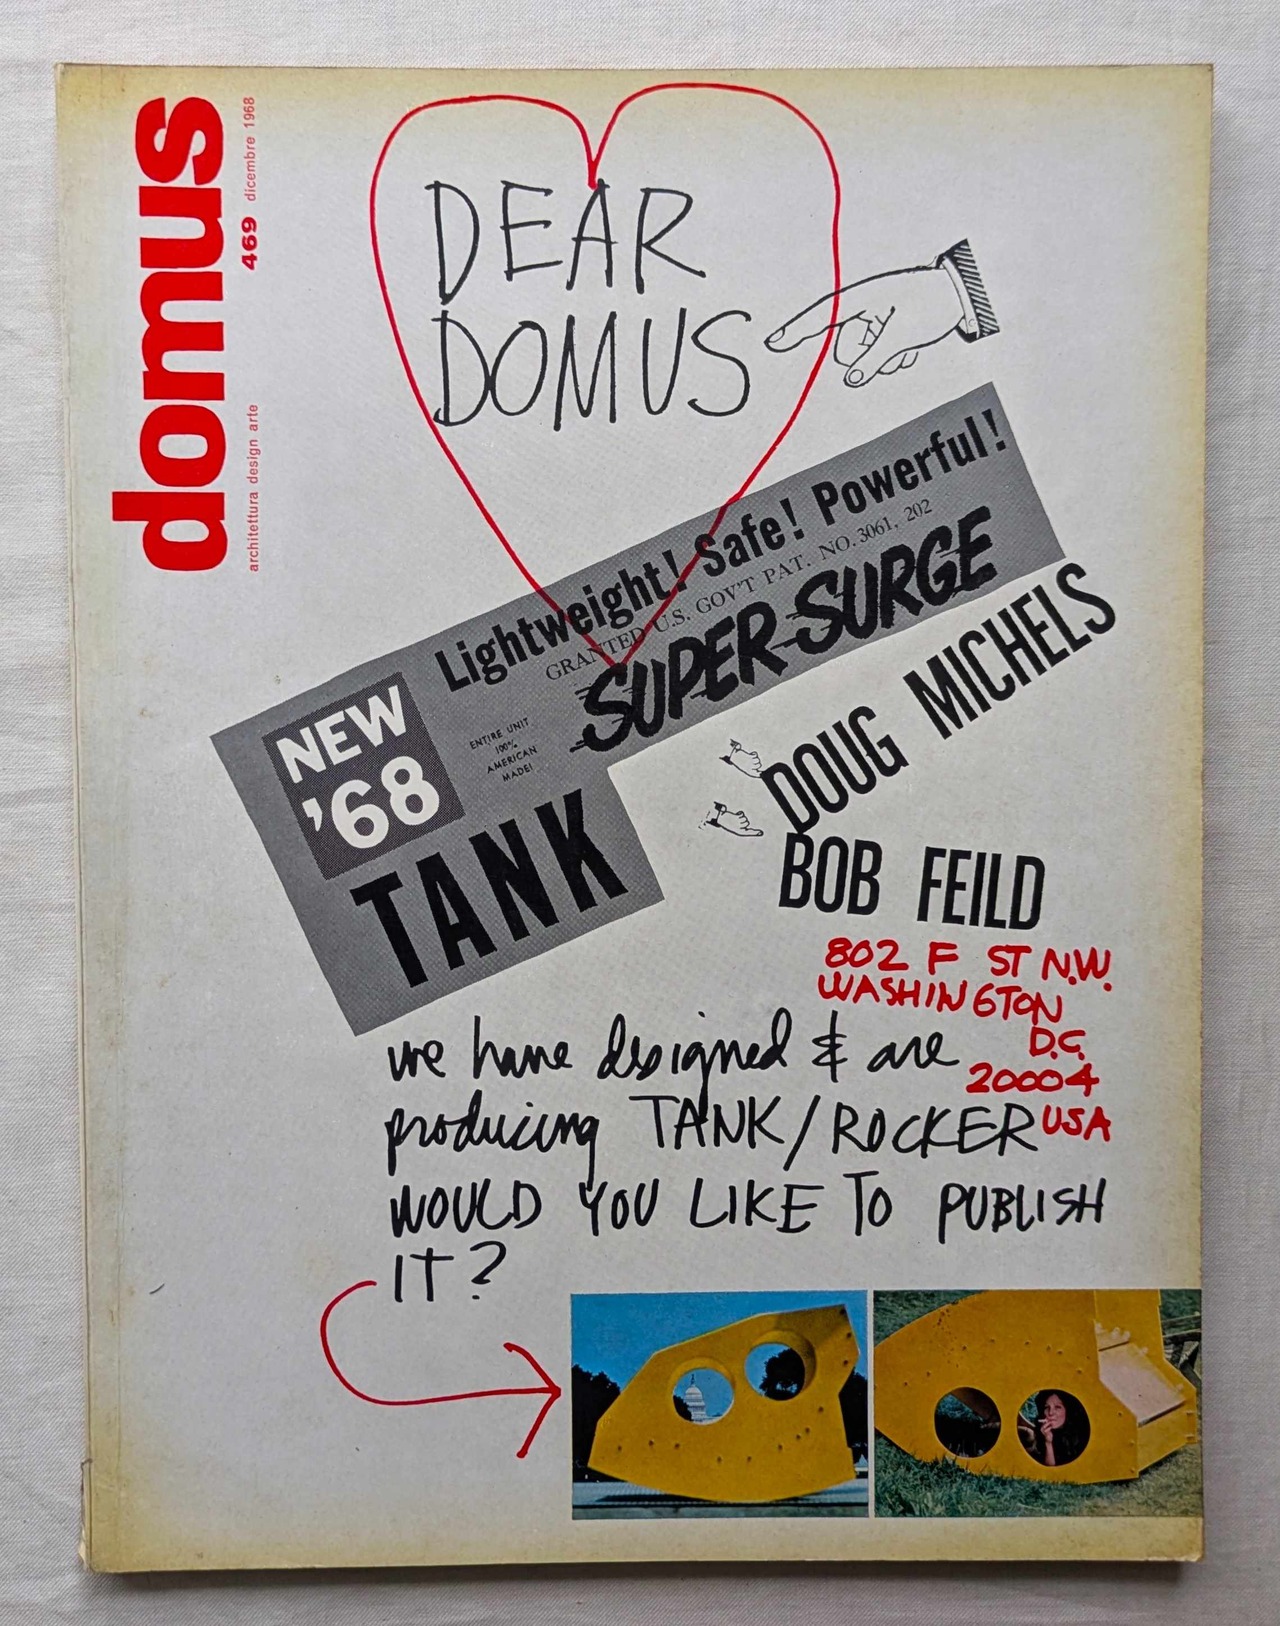 domus
469 dicembre 1968
architettura design arte
DEAR
DOMUS
Lightweight! Safe! Powerful!
GRANTED U.S. GOV'T PAT. NO. 3061, 202
SUPER-SURGE
NEW
'68
ENTIRE UNIT
100%
AMERICAN
MADE!
TANK
DOUG MICHELS
BOB FEILD
802 F ST N.W.
WASHINGTON
D.C.
20004
USA
we have designed & are
producing TANK/ROCKER
WOULD YOU LIKE TO PUBLISH
IT?